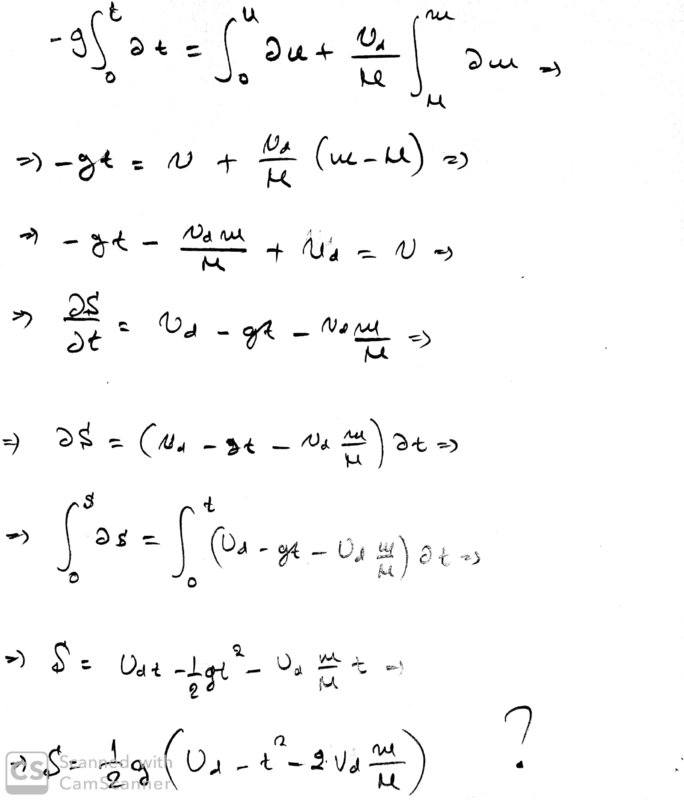 -g∫₀ᵗ ∂t = ∫₀ᵘ ∂u + υd/M ∫_M^m ∂m ⇒
⇒ -gt = υ + υd/M (m-M) ⇒
⇒ -gt - υd m/M + υd = υ ⇒
⇒ ∂S/∂t = υd - gt - υd m/M ⇒
⇒ ∂S = (υd - gt - υd m/M) ∂t ⇒
⇒ ∫₀ˢ ∂s = ∫₀ᵗ (υd - gt - υd m/M) ∂t ⇒
⇒ S = υd t - 1/2 gt² - υd m/M t ⇒
⇒ S = 1/2 g (υd - t² - 2υd m/M) ?
CS Scanned with
CamScanner